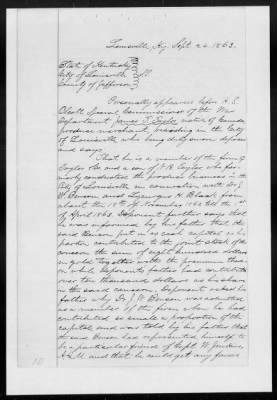 Louisville, Ky. Sept. 24. 1863.
State of Kentucky
City of Louisville ss.
County of Jefferson
Personally appeared before H. S.
Olcott Special Commissioner of the War
Department James T. Taylor native of Canada
produce merchant, residing in the City
of Louisville who being duly sworn deposes
and says
That he is a member of the firm of
Taylor & Co and a son of J. R. Taylor who for-
merly conducted the produce business in the
City of Louisville in connection with Dr. J.
W. Benson and Lazarus H. Black from
about the 18th of November 1862 till the 1st
of April 1863. Deponent further says that
he was informed by his father that the
said Benson put in as cash capital as his
portion contribution to the joint stock of the
concern the sum of Eight hundred dollars
in gold together with the premium there-
on while deponents father had contributed
over ten thousand dollars as his share
in the said concern. Deponent asked his
father why Dr. J. W. Benson was admitted
as a member of the firm when he had
contributed so small a proportion of the
capital and was told by his father that
the said Benson had represented himself to
be a particular friend of Capt. W. Jenkins
A.Q.M. and that he could get any favors
10